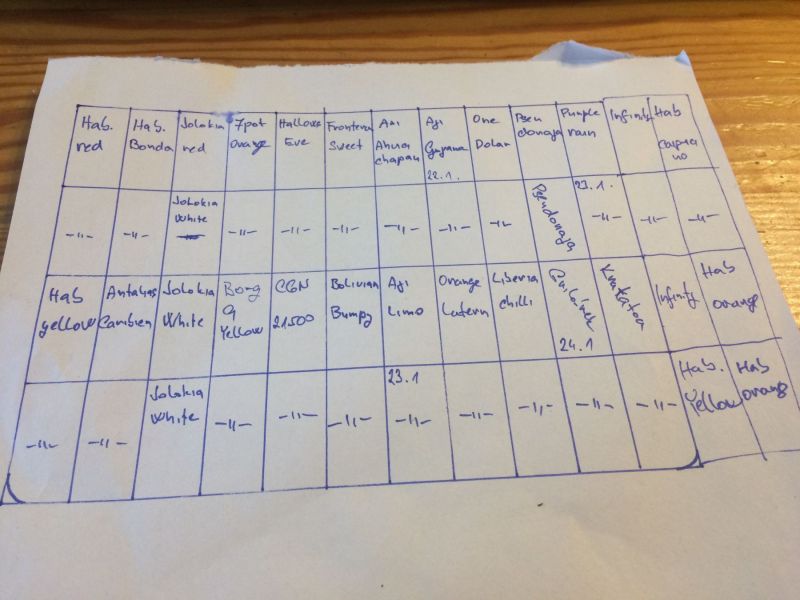 Hab. red
Hab. Bonda
Jolokia red
7pot Orange
Hallows Eve
Frontera Sweet
Axi Ahuachapan
Aji Guyana 22.1.
One Dolar
Pseudonaja
Purple rain
Infinity
Hab
-11-
-11-
Jolokia White
-11-
-11-
-11-
-11-
-11-
-11-
Pseudonaja
23.1. -11-
-11-
-11-
Hab yellow
Cambien
Jolokia White
Bong 9 Yellow
CGN 21500
Bolivian Bumpy
Aji Limo
Orange Latern
Liberia chilli
24.1
Krakatoa
Infinity
Hab orange
-11-
-11-
Jolokia White
-11-
-11-
-11-
23.1 -11-
-11-
-11-
-11-
-11-
Hab. Yellow
Hab orang